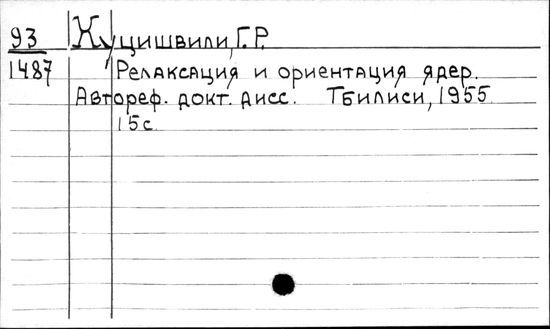 93 Хуцишвили, Г.Р.
1487 Релаксация и ориентация ядер.
Автореф. докт. дисс. Тбилиси, 1955
15 с.